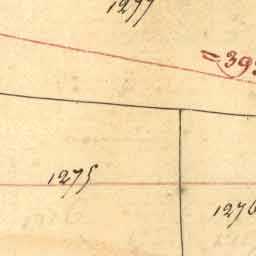 1277
=393
1275
1276